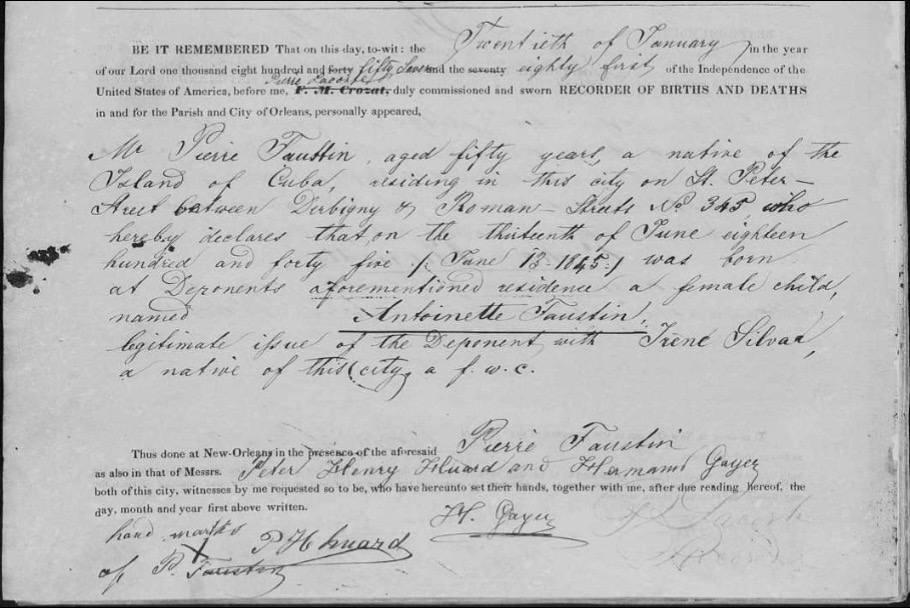 BE IT REMEMBERED That on this day, to-wit: the Twentieth of January in the year
of our Lord one thousand eight hundred and forty fifty Seven and the seventy eighty first of the Independence of the
United States of America, before me, Pierre Lacoste F. M. Crozat, duly commissioned and sworn RECORDER OF BIRTHS AND DEATHS
in and for the Parish and City of Orleans, personally appeared,
Mr Pierre Faustin, aged fifty years, a native of the
Island of Cuba, residing in this city on St. Peter—
Street between Derbigny & Roman—Streets No 345, who
hereby declares that on the thirteenth of June eighteen
hundred and forty five /: June 13-1845:/ was born
at Deponents aforementioned residence a female child,
named Antoinette Faustin,
legitimate issue of the Deponent with Irene Silvaa,
a native of this city, a f. w. c.
Thus done at New-Orleans in the presence of the aforesaid Pierre Faustin
as also in that of Messrs. Peter Henry Huard and Hermann Gayer
both of this city, witnesses by me requested so to be, who have hereunto set their hands, together with me, after due reading hereof, the
day, month and year first above written.
H. Gayer
hand marks X P H huard
of P. Faustin